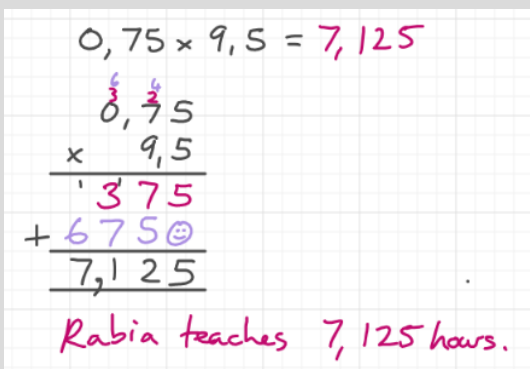 0,75 × 9,5 = 7,125
6 4
3 2
0,75
× 9,5
1 1
375
+ 675☺
7,125
Rabia teaches 7,125 hours.